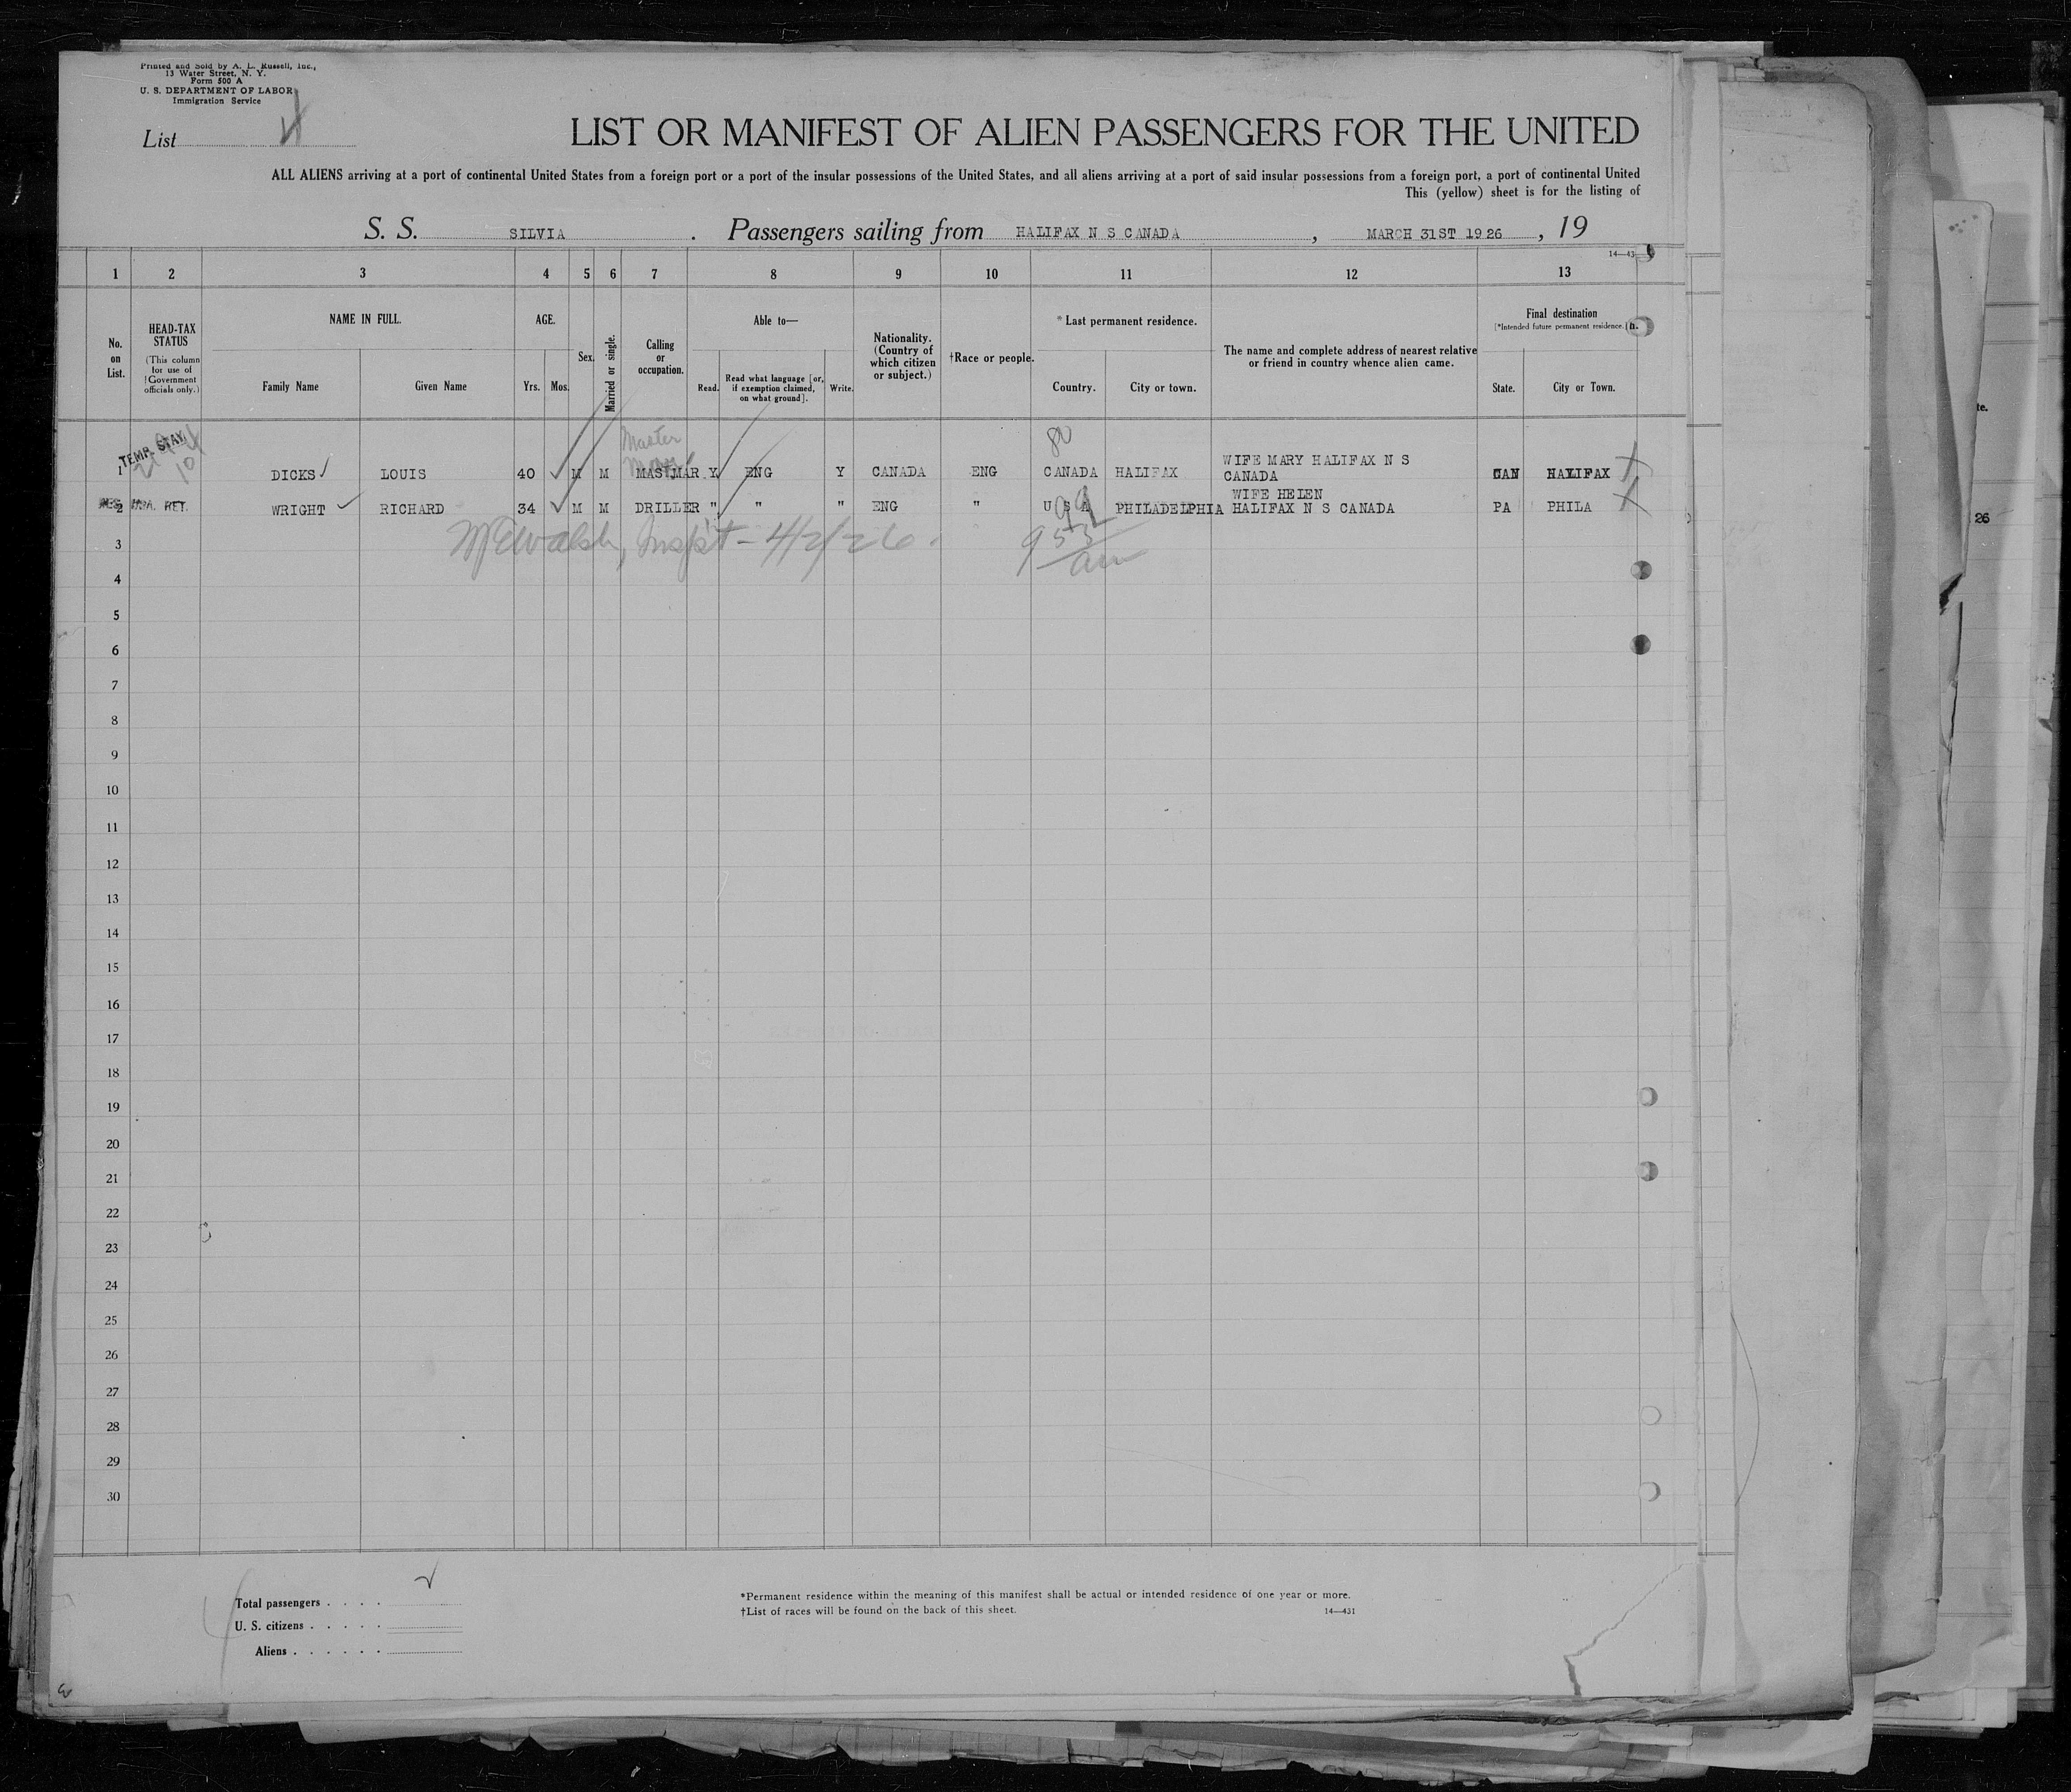 Printed and Sold by A. L. Russell, Inc.,
13 Water Street, N. Y.
Form 500 A
U. S. DEPARTMENT OF LABOR
Immigration Service
List
LIST OR MANIFEST OF ALIEN PASSENGERS FOR THE UNITED
ALL ALIENS arriving at a port of continental United States from a foreign port or a port of the insular possessions of the United States, and all aliens arriving at a port of said insular possessions from a foreign port, a port of continental United
This (yellow) sheet is for the listing of
S. S. SILVIA . Passengers sailing from HALIFAX N S CANADA , MARCH 31ST 1926 , 19
14—43
1 2 3 4 5 6 7 8 9 10 11 12 13
No. on List.
HEAD-TAX STATUS
(This column for use of Government officials only.)
NAME IN FULL.
Family Name
Given Name
AGE.
Yrs.
Mos.
Sex.
Married or single.
Calling or occupation.
Able to—
Read.
Read what language [or, if exemption claimed, on what ground].
Write.
Nationality. (Country of which citizen or subject.)
†Race or people.
*Last permanent residence.
Country.
City or town.
The name and complete address of nearest relative or friend in country whence alien came.
Final destination
[*Intended future permanent residence.]
State.
City or Town.
te.
TEMP. STAY
Master
80
1 DICKS LOUIS 40 M M MAS.MAR Y ENG Y CANADA ENG CANADA HALIFAX WIFE MARY HALIFAX N S CANADA CAN HALIFAX
2 WRIGHT RICHARD 34 M M DRILLER " " " ENG " U S A PHILADELPHIA WIFE HELEN HALIFAX N S CANADA PA PHILA
99
26
3 Walsh, Insp't - 4/2/26. 953 am
4
5
6
7
8
9
10
11
12
13
14
15
16
17
18
19
20
21
22
23
24
25
26
27
28
29
30
Total passengers . . . .
U. S. citizens . . . . .
Aliens . . . . . .
*Permanent residence within the meaning of this manifest shall be actual or intended residence of one year or more.
†List of races will be found on the back of this sheet.
14—431